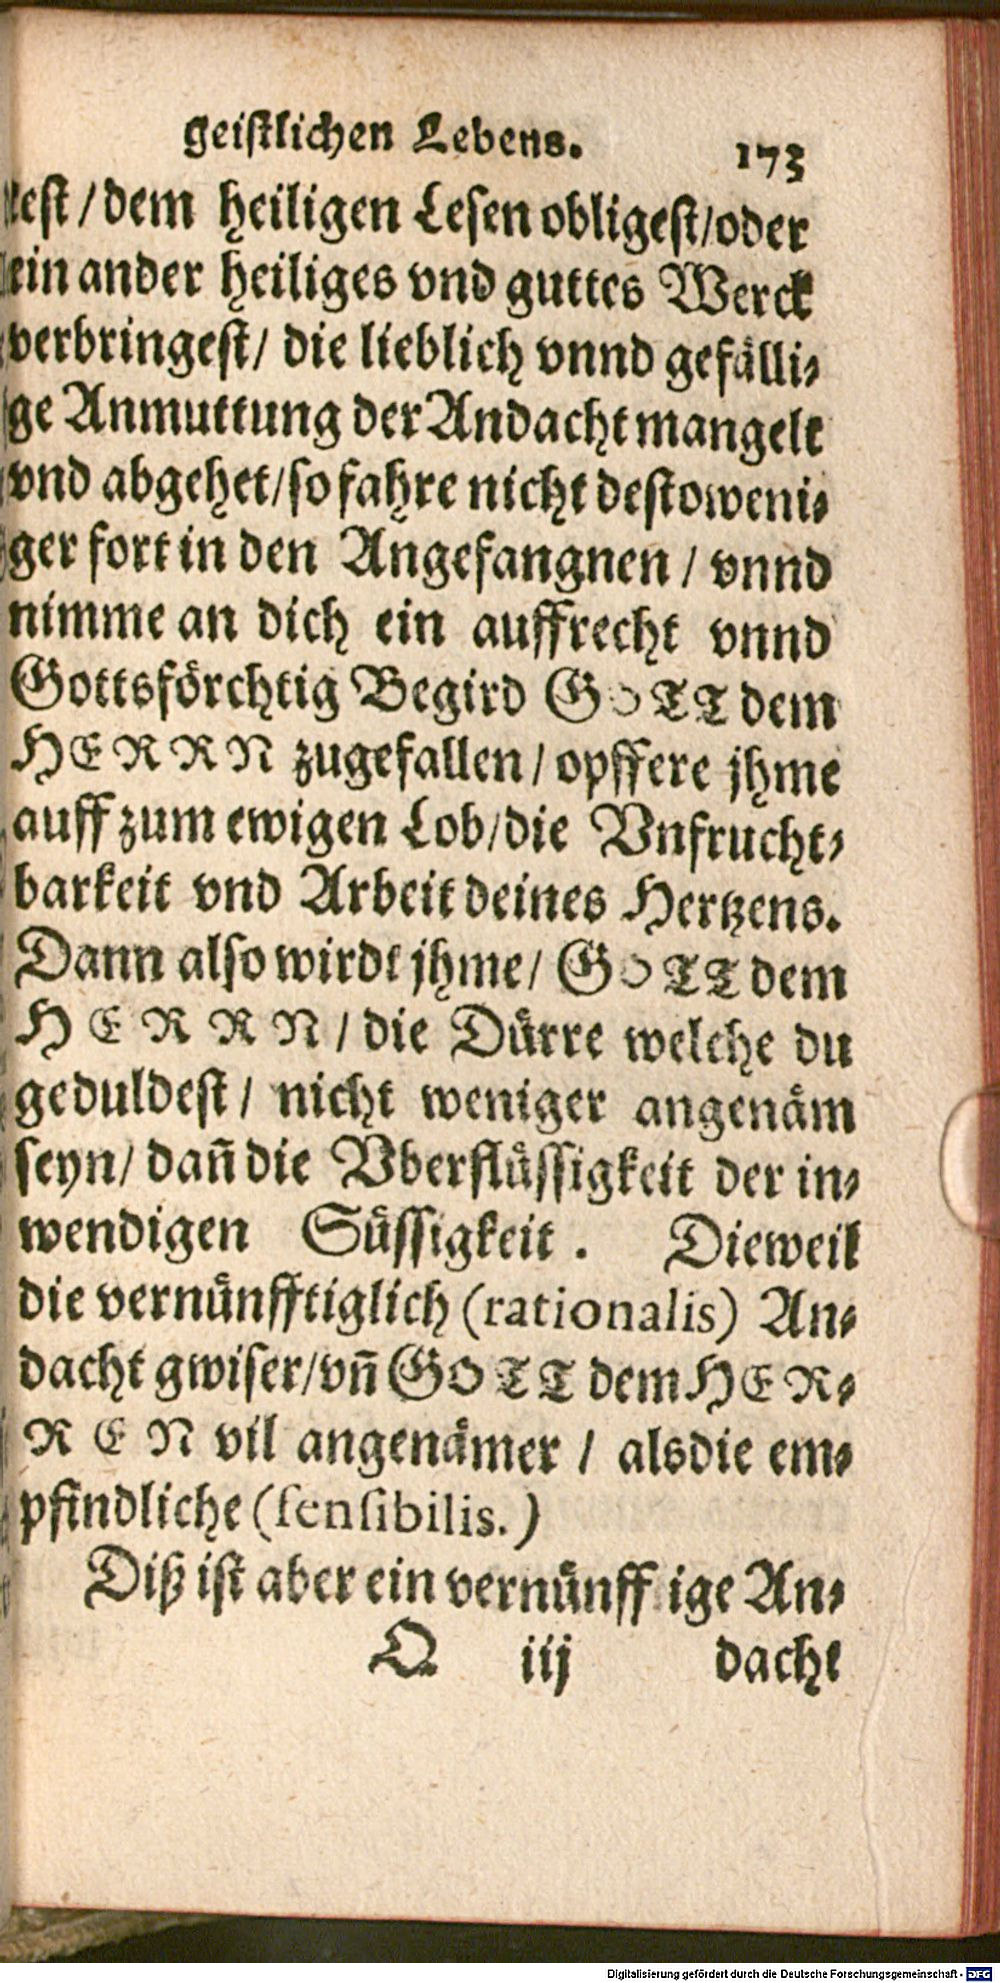 geistlichen Lebens. 173
test / dem heiligen Lesen obligest / oder
ein ander heiliges vnd guttes Werck
verbringest / die lieblich vnnd gefälli-
ge Anmuttung der Andacht mangelt
vnd abgehet / so fahre nicht destoweni-
ger fort in den Angefangnen / vnnd
nimme an dich ein auffrecht vnnd
Gottsförchtig Begird GOTT dem
HERRN zugefallen / opffere jhme
auff zum ewigen Lob / die Vnfrucht-
barkeit vnd Arbeit deines Hertzens.
Dann also wirdt jhme / GOTT dem
HERRN / die Dürre welche du
geduldest / nicht weniger angenäm
seyn / dañ die Vberflüssigkeit der in-
wendigen Süssigkeit. Dieweil
die vernünfftiglich (rationalis) An-
dacht gwiser / vñ GOTT dem HER-
REN vil angenämer / als die em-
pfindliche (sensibilis.)
Diß ist aber ein vernünff ige An-
Q iij dacht
Digitalisierung gefördert durch die Deutsche Forschungsgemeinschaft - DFG